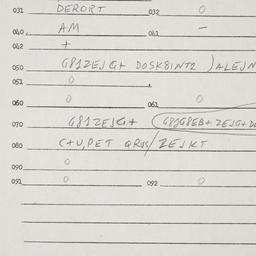 031 DERORT 032 0
040 AM 041 —
042 +
050 G81ZEJG+ DOSK8INT2 )ALEJN
051 0
060 0 061 0
070 G81ZEJG+
080 C+U,PET QRUS/ZEJKT
090 0
091 0 092 0